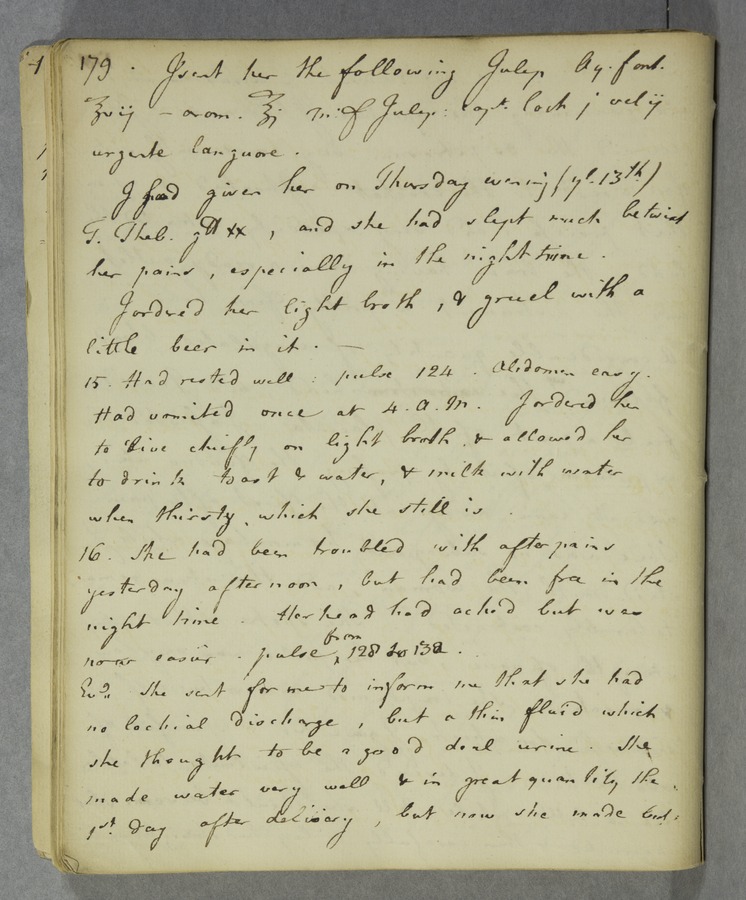 179. I sent her the following Julep Aq. font.
℥vij - arom. ℥j m. f Julep: capt. coch j vel ij
urgente languore.
I had given her on Thursday evening (ye. 13th)
T. Theb. gtt xx, and she had slept much betwixt
her pains, especially in the night time.
I ordered her light broth, & gruel with a
little beer in it. —
15. Had rested well: pulse 124. Abdomen easy.
Had vomited once at 4. A.M. I ordered her
to live chiefly on light broth & allowed her
to drink toast & water, & milk with water
when thirsty, which she still is.
16. She had been troubled with after pains
yesterday afternoon, but had been free in the
night time. Her head had ached but was
now easier. pulse from 128 to 132.
Evg. She sent for me to inform me that she had
no lochial discharge, but a thin fluid which
she thought to be a good deal urine. She
made water very well & in great quantity the
1st. day after delivery, but now she made but